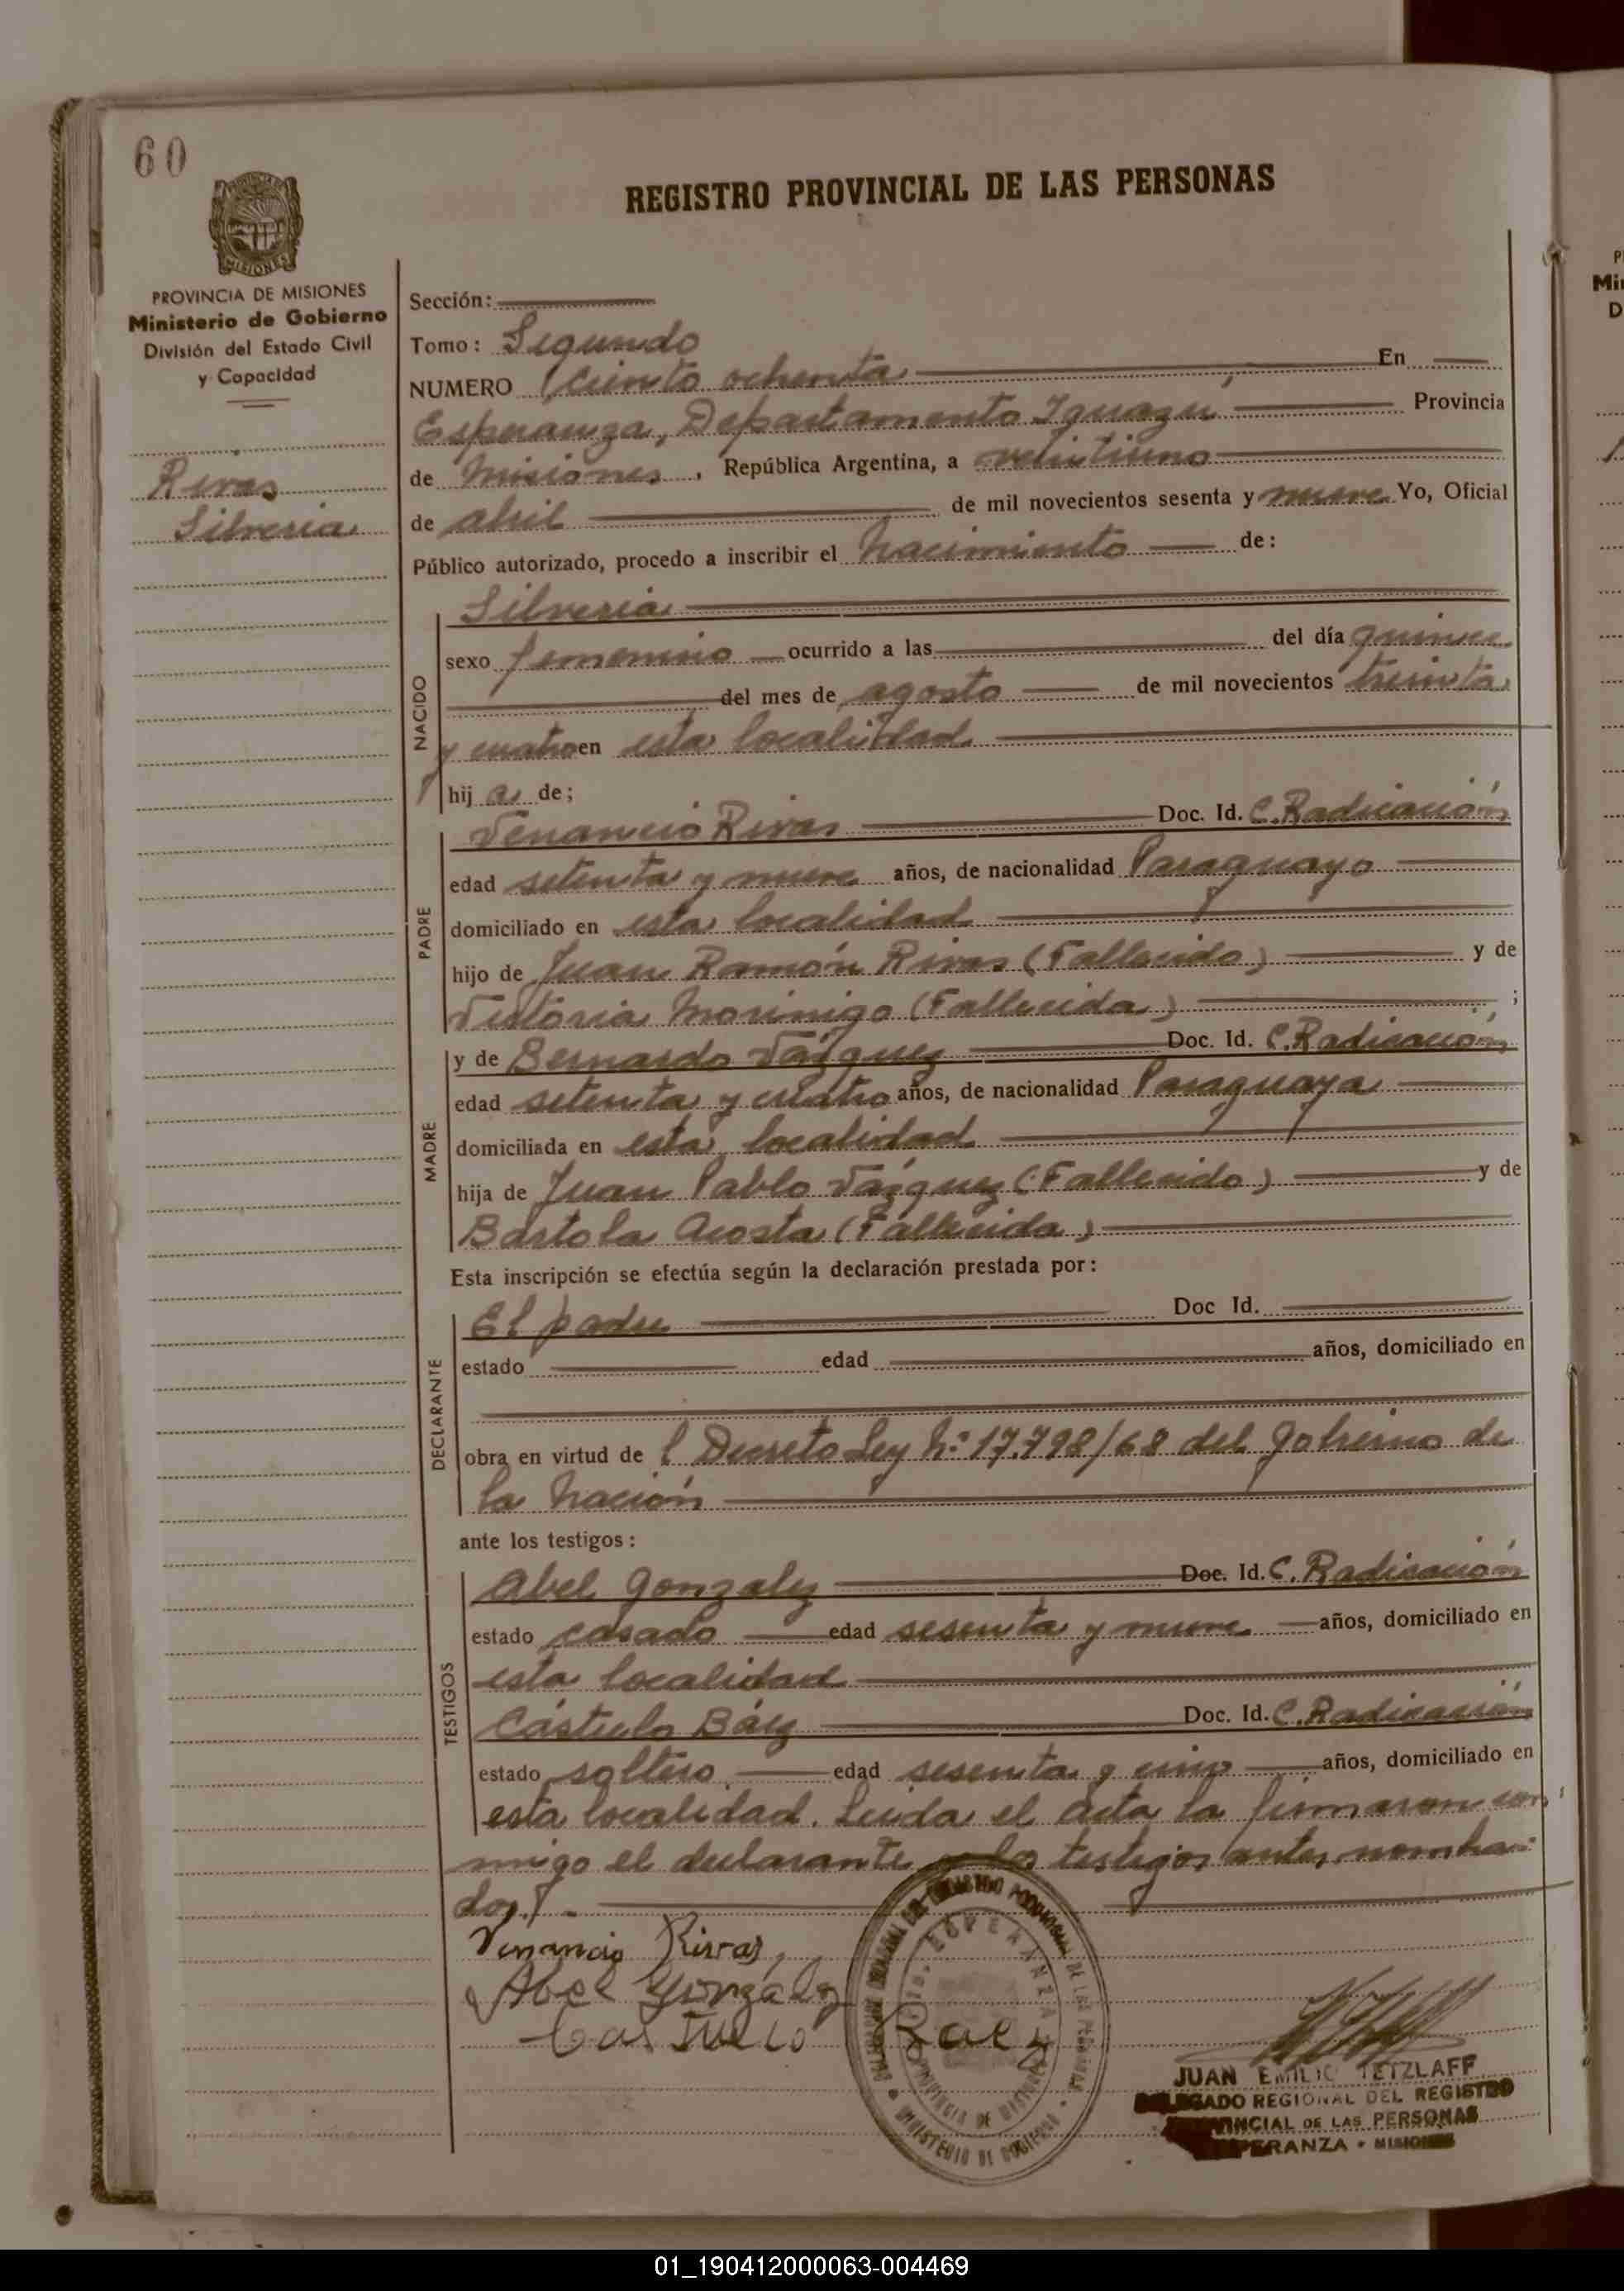 60
REGISTRO PROVINCIAL DE LAS PERSONAS
PROVINCIA DE MISIONES
Ministerio de Gobierno
División del Estado Civil
y Capacidad
Rivas
Silveria
Sección:
Tomo: Segundo
NUMERO Ciento ochenta En
Esperanza, Departamento Iguazú, Provincia
de Misiones, República Argentina, a veintiuno
de abril de mil novecientos sesenta y nueve Yo, Oficial
Público autorizado, procedo a inscribir el nacimiento de:
NACIDO
Silveria
sexo femenino ocurrido a las del día quince
del mes de agosto de mil novecientos treinta
y cuatro en esta localidad
hij a de;
PADRE
Venancio Rivas Doc. Id. C. Radicación
edad setenta y nueve años, de nacionalidad Paraguayo
domiciliado en esta localidad
hijo de Juan Ramón Rivas (Fallecido) y de
Victoria Morinigo (Fallecida) ;
MADRE
y de Bernardo Vázquez Doc. Id. C. Radicación
edad setenta y cuatro años, de nacionalidad Paraguaya
domiciliada en esta localidad
hija de Juan Pablo Vázquez (Fallecido) y de
Bartola Acosta (Fallecida)
Esta inscripción se efectúa según la declaración prestada por:
DECLARANTE
El padre Doc Id.
estado edad años, domiciliado en
obra en virtud de l Decreto Ley Nº 17.798/68 del Gobierno de
la Nación
ante los testigos:
TESTIGOS
Abel Gonzalez Doc. Id. C. Radicación
estado casado edad sesenta y nueve años, domiciliado en
esta localidad
Cástulo Báez Doc. Id. C. Radicación
estado soltero edad sesenta y cinco años, domiciliado en
esta localidad. Leida el acta la firmaron con-
migo el declarante y los testigos antes nombra-
dos.
Venancio Rivas
Abel Gonzalez
Castulo Baez
ESPERANZA
PROVINCIA DE MISIONES
MINISTERIO DE GOBIERNO
JUAN EMILIO TETZLAFF
DELEGADO REGIONAL DEL REGISTRO
PROVINCIAL DE LAS PERSONAS
ESPERANZA - MISIONES
Mi
D
01_190412000063-004469